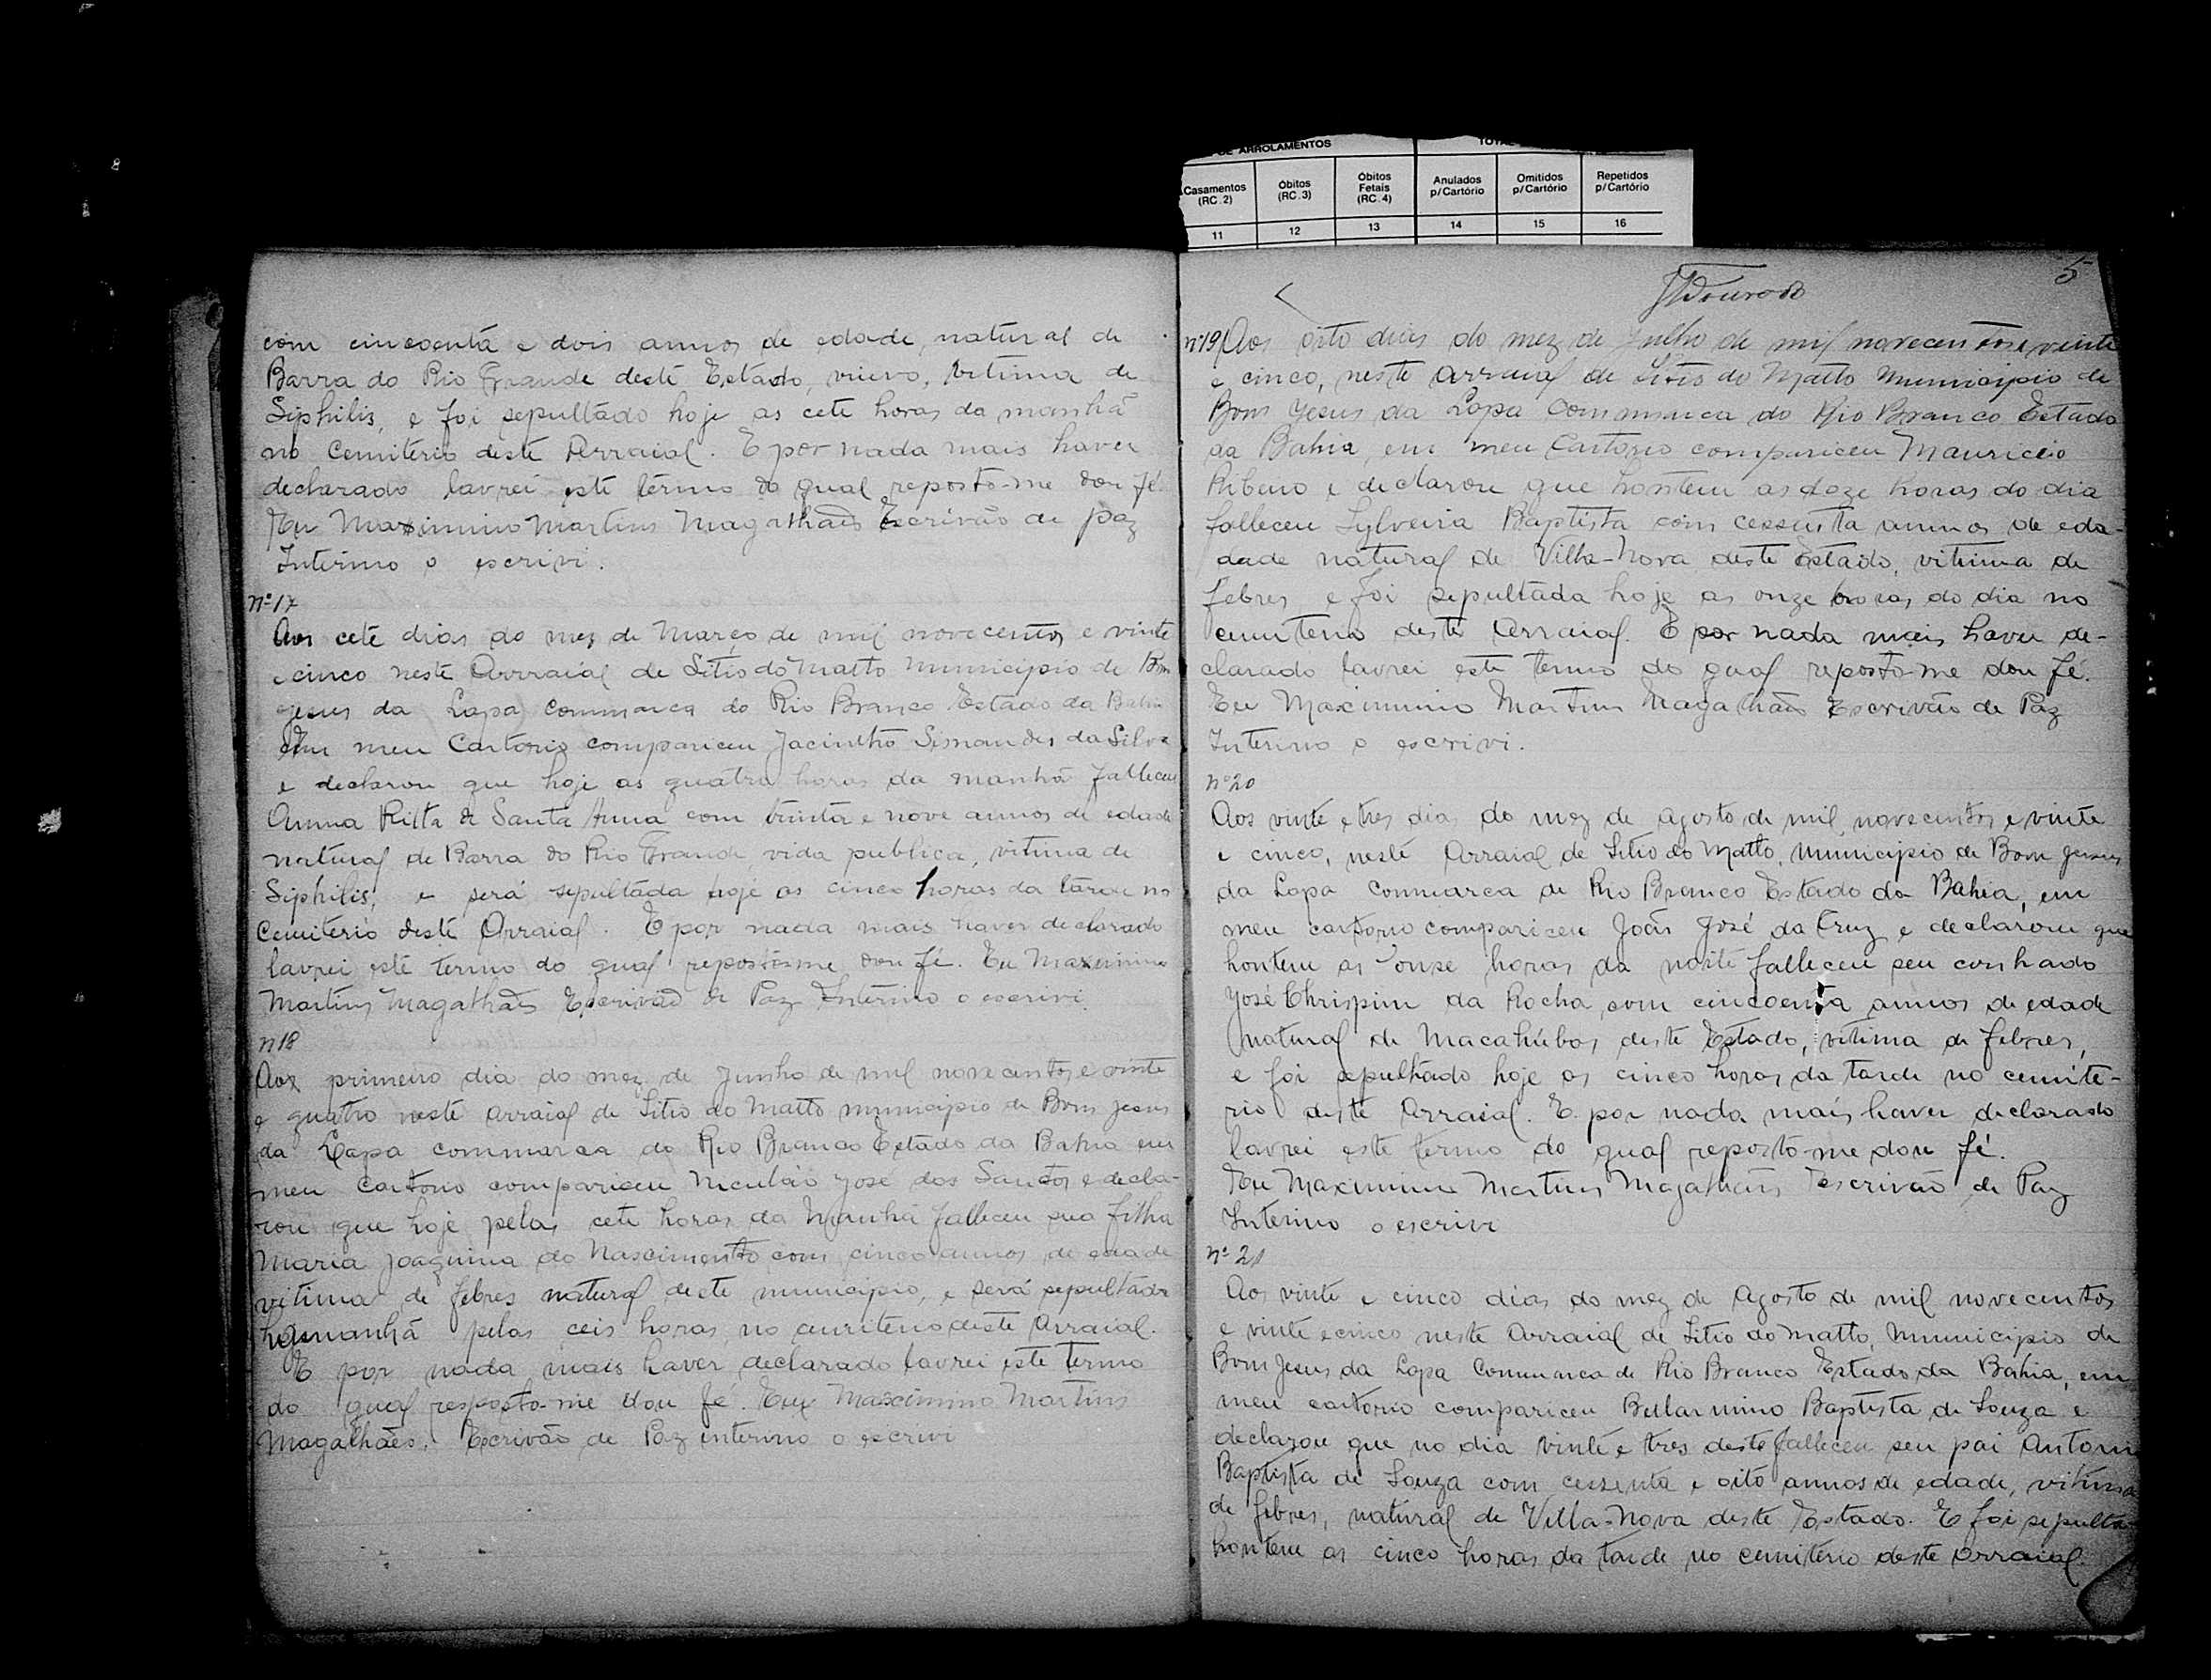 DE ARROLAMENTOS
Casamentos (RC.2)
Óbitos (RC.3)
Óbitos Fetais (RC.4)
Anulados p/Cartório
Omitidos p/Cartório
Repetidos p/Cartório
11 12 13 14 15 16
com cincoentã e dois annos de edade, natural de
Barra do Rio Grande destê Estado, viuvo, vitima de
Siphilis, e foi sepultãdo hoje as cete horas da manhã
no Cemiterio destê Arraial. E por nada mais haver
declarado lavrei este têrmo do qual reposto-me dou fé.
Eu Maximino Martins Magalhães Escrivão de paz
Interino o escrivi.
nº 17
Aos cete dias do mez de Março de mil novecentos e vinte
e cinco neste Arraial de Sitio do Matto municipio de Bom
Jesus da Lapa Commarca do Rio Branco Estado da Bahia
em meu Cartorio compariceu Jacintho Sisnandes da Silva
e declarou que hoje as quatro horas da manhã falleceu
Anna Ritta de Santa Anna com trinta e nove annos de edade
natural de Barra do Rio Grande vida publica, vitima de
Siphilis, e será sepultada hoje as cinco horas da tarde no
Cemiterio destê Arraial. E por nada mais haver declarado
lavrei este termo do qual reposto-me dou fé. Eu Maximino
Martins Magalhães Escrivão de Paz Interino o escrivi.
n 18
Aos primeiro dia do mez de Junho de mil novecentos e vinte
e quatro neste arraial de Sitio do Matto municipio de Bom Jesus
da Lapa commarca do Rio Branco Estado da Bahia em
meu Cartorio compariceu Niculáo José dos Santos e decla-
rou que hoje pelas cete horas da Manhã falleceu sua filha
Maria Joaquina do Nascimento com cinco annos de edade
vitima de febres natural deste municipio, e será sepultada
hamanhã pelas ceis horas no cemiterio deste Arraial.
E por nada mais haver declarado lavrei este termo
do qual resposto-me dou fé. Eu Maximino Martins
Magalhães. Escrivão de Paz interino o escrivi
5
nº 19 Aos oito dias do mez de Julho de mil novecentos e vinte
e cinco, neste arraial de Sitio do Matto Municipio de
Bom Jesus da Lapa Commarca do Rio Branco Estado
da Bahia, em meu Cartorio compariceu Mauricio
Ribeiro e declarou que hontem as doze horas do dia
falleceu Sylveria Baptista com cessenta annos de eda-
dade natural de Villa-Nova deste Estado, vitima de
febres e foi sepultada hoje as onze horas do dia no
cemiterio deste Arraial. E por nada mais haver de-
clarado lavrei este termo do qual reposto-me dou fé.
Eu Maximino Martins Magalhães Escrivão de Paz
Interino o escrivi.
nº 20
Aos vinte e tres dias do mez de agosto de mil novecentos e vinte
e cinco, neste Arraial de Sitio do Matto, municipio de Bom Jesus
da Lapa Commarca de Rio Branco Estado da Bahia, em
meu cartorio compariceu João José da Cruz e declarou que
hontem as onse horas da noite falleceu seu cunhado
José Chrispim da Rocha, com cincoenta annos de edade
natural de Macahúbas deste Estado, vitima de febres,
e foi sepulhado hoje as cinco horas da tarde no cemite-
rio deste Arraial. E por nada mais haver declarado
lavrei este termo do qual reposto-me dou fé.
Eu Maximino Martins Magalhães Escrivão de Paz
Interino o escrivi
nº 21
Aos vinte e cinco dias do mez de Agosto de mil novecentos
e vinte e cinco neste Arraial de Sitio do Matto, Municipio de
Bom Jesus da Lapa Commarca de Rio Branco Estado da Bahia, em
meu cartorio compariceu Bellarmino Baptista de Souza e
declarou que no dia vinte e tres deste falleceu seu pai Antonio
Baptista de Souza com cessenta e oito annos de edade, vitima
de febres, natural de Villa-Nova deste Estado. E foi sepulta-
hontem as cinco horas da tarde no cemiterio deste arraial.